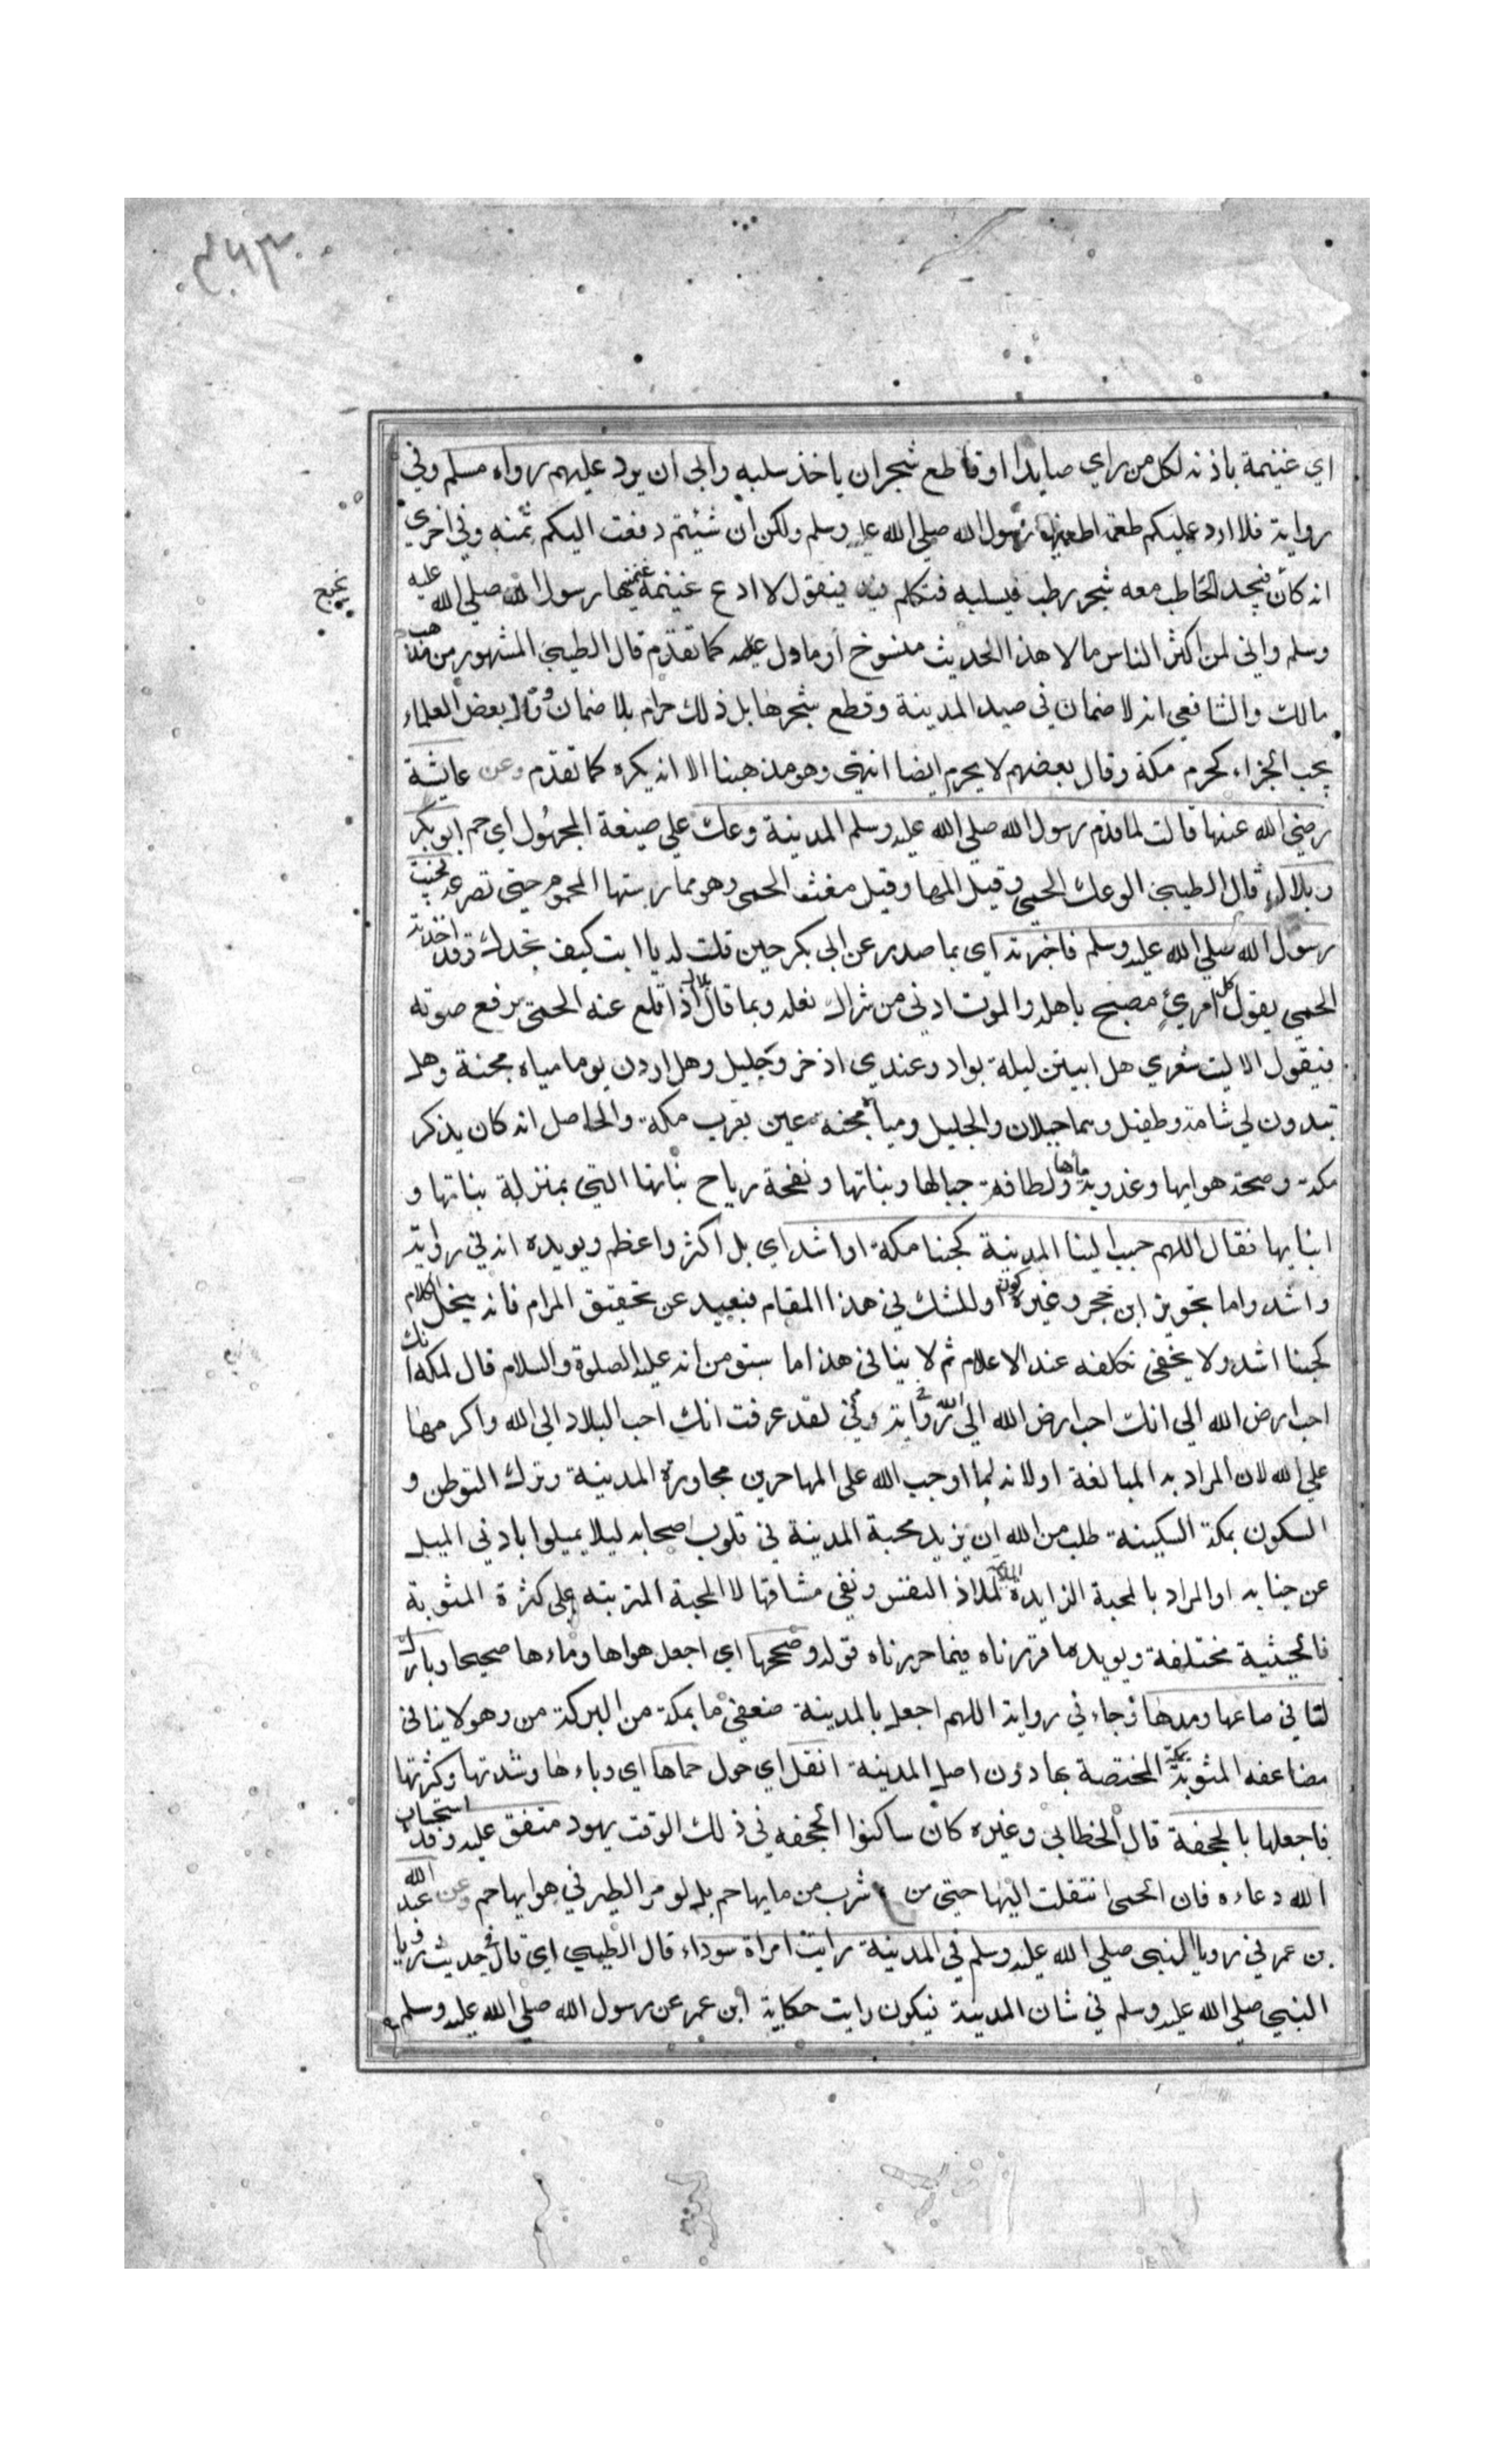 اي غنيمة باذنه لكل من راي صايدا او قاطع شجر ان ياخذ سلبه وابي ان يرد عليهم رواه مسلم وفي
رواية فلا ارد عليكم طعمة اطعمنيها رسول الله صلي الله عليه وسلم ولكن ان شيتم دفعت اليكم ثمنه وفي اخري
انه كان يجد الحاطب معه شجر رطب فيسلبه فتكلم فيه فيقول لا ادع غنيمة غنمنيها رسول الله صلي الله عليه
وسلم واني لمن اكثر الناس مالا هذا الحديث منسوخ او ماول عليه كما تقدم قال الطيبي المشهور من مذهب
مالك والشافعي انه لا ضمان في صيد المدينة وقطع شجرها بل ذلك حرام بلا ضمان وقال بعض العلماء
يجب الجزاء كحرم مكة وقال بعضهم لا يحرم ايضا انتهي وهو مذهبنا الا انه يكره كما تقدم وعن عايشة
رضي الله عنها قالت لما قدم رسول الله صلي الله عليه وسلم المدينة وعك علي صيغة المجهول اي حم ابو بكر
وبلال قال الطيبي الوعك الحمي وقيل المها وقيل مغث الحمى وهو ممارستها المحموم حتي تصرعه فجيت
رسول الله صلي الله عليه وسلم فاخبرته اي بما صدر عن ابي بكر حين قلت له يا ابت كيف تجدك وقد اخذته
الحمي يقول كل امريٍ مصبح باهله والموت ادني من شراك نعله وبما قال بلال اذا اقلع عنه الحمى يرفع صوته
فيقول الا ليت شعري هل ابيتن ليلة بواد وعندي اذخر وجليل وهل اردن يوما مياه مجنة وهل
تبدون لي شامة وطفيل وهما جبلان والجليل ومياه مجنه عين بقرب مكة والحاصل انه كان يذكر
مكة وصحة هوايها وعذوبة ماءها ولطافة جبالها ونباتها ونفحة رياح نباتها التي بمنزلة بناتها و
ابنايها فقال اللهم حبب الينا المدينة كحبنا مكة او اشد اي بل اكثر واعظم ويويده انه في رواية
واشد واما تجويز ابن حجر وغيره كون او للشك في هذا المقام فبعيد عن تحقيق المرام فانه ينحل الكلام
كحبنا اشد ولا يخفى تكلفه عند الاعلام ثم لا ينافي هذا ما سبق من انه عليه الصلوة والسلام قال لمكة انك
احب ارض الله الي انك احب ارض الله الي الله وفي رواية لقد عرفت انك احب البلاد الي الله واكرمها
علي الله لان المراد به المبالغة او لانه لما اوجب الله على المهاجرين مجاورة المدينة وترك التوطن و
السكون بمكة السكينة طلب من الله ان يزيد محبة المدينة في قلوب اصحابه ليلا يميلوا بادني الميل
عن جنابه او المراد بالمحبة الزايدة لملاذ النفس ونفي مشاقها لا المحبة المترتبه على كثرة المثوبة
فالحيثية مختلفة ويويده ما قررناه فيما حررناه قوله وصححها اي اجعل هواها وماءها صحيحا وبارك
لنا في صاعها ومدها وجاء في رواية اللهم اجعل بالمدينة ضعفي ما بمكة من البركة من وهو لا ينافي
مضاعفه المثوبة بمكة المختصة بها دون اصل المدينة انقل اي حول حماها اي وباءها وشدتها وكثرتها
فاجعلها بالجحفة قال الخطابي وغيره كان ساكنوا الجحفه في ذلك الوقت يهود متفق عليه وقد استجاب
الله دعاءه فان الحمى انتقلت اليها حتى من شرب من مايها حم بل لو مر الطير في هوايها حم وعن عبد الله
بن عمر في رويا النبي صلي الله عليه وسلم في المدينة رايت امراة سوداء قال الطيبي اي قال في حديث رويا
النبي صلي الله عليه وسلم في شان المدينة فيكون رايت حكاية ابن عمر عن رسول الله صلي الله عليه وسلم